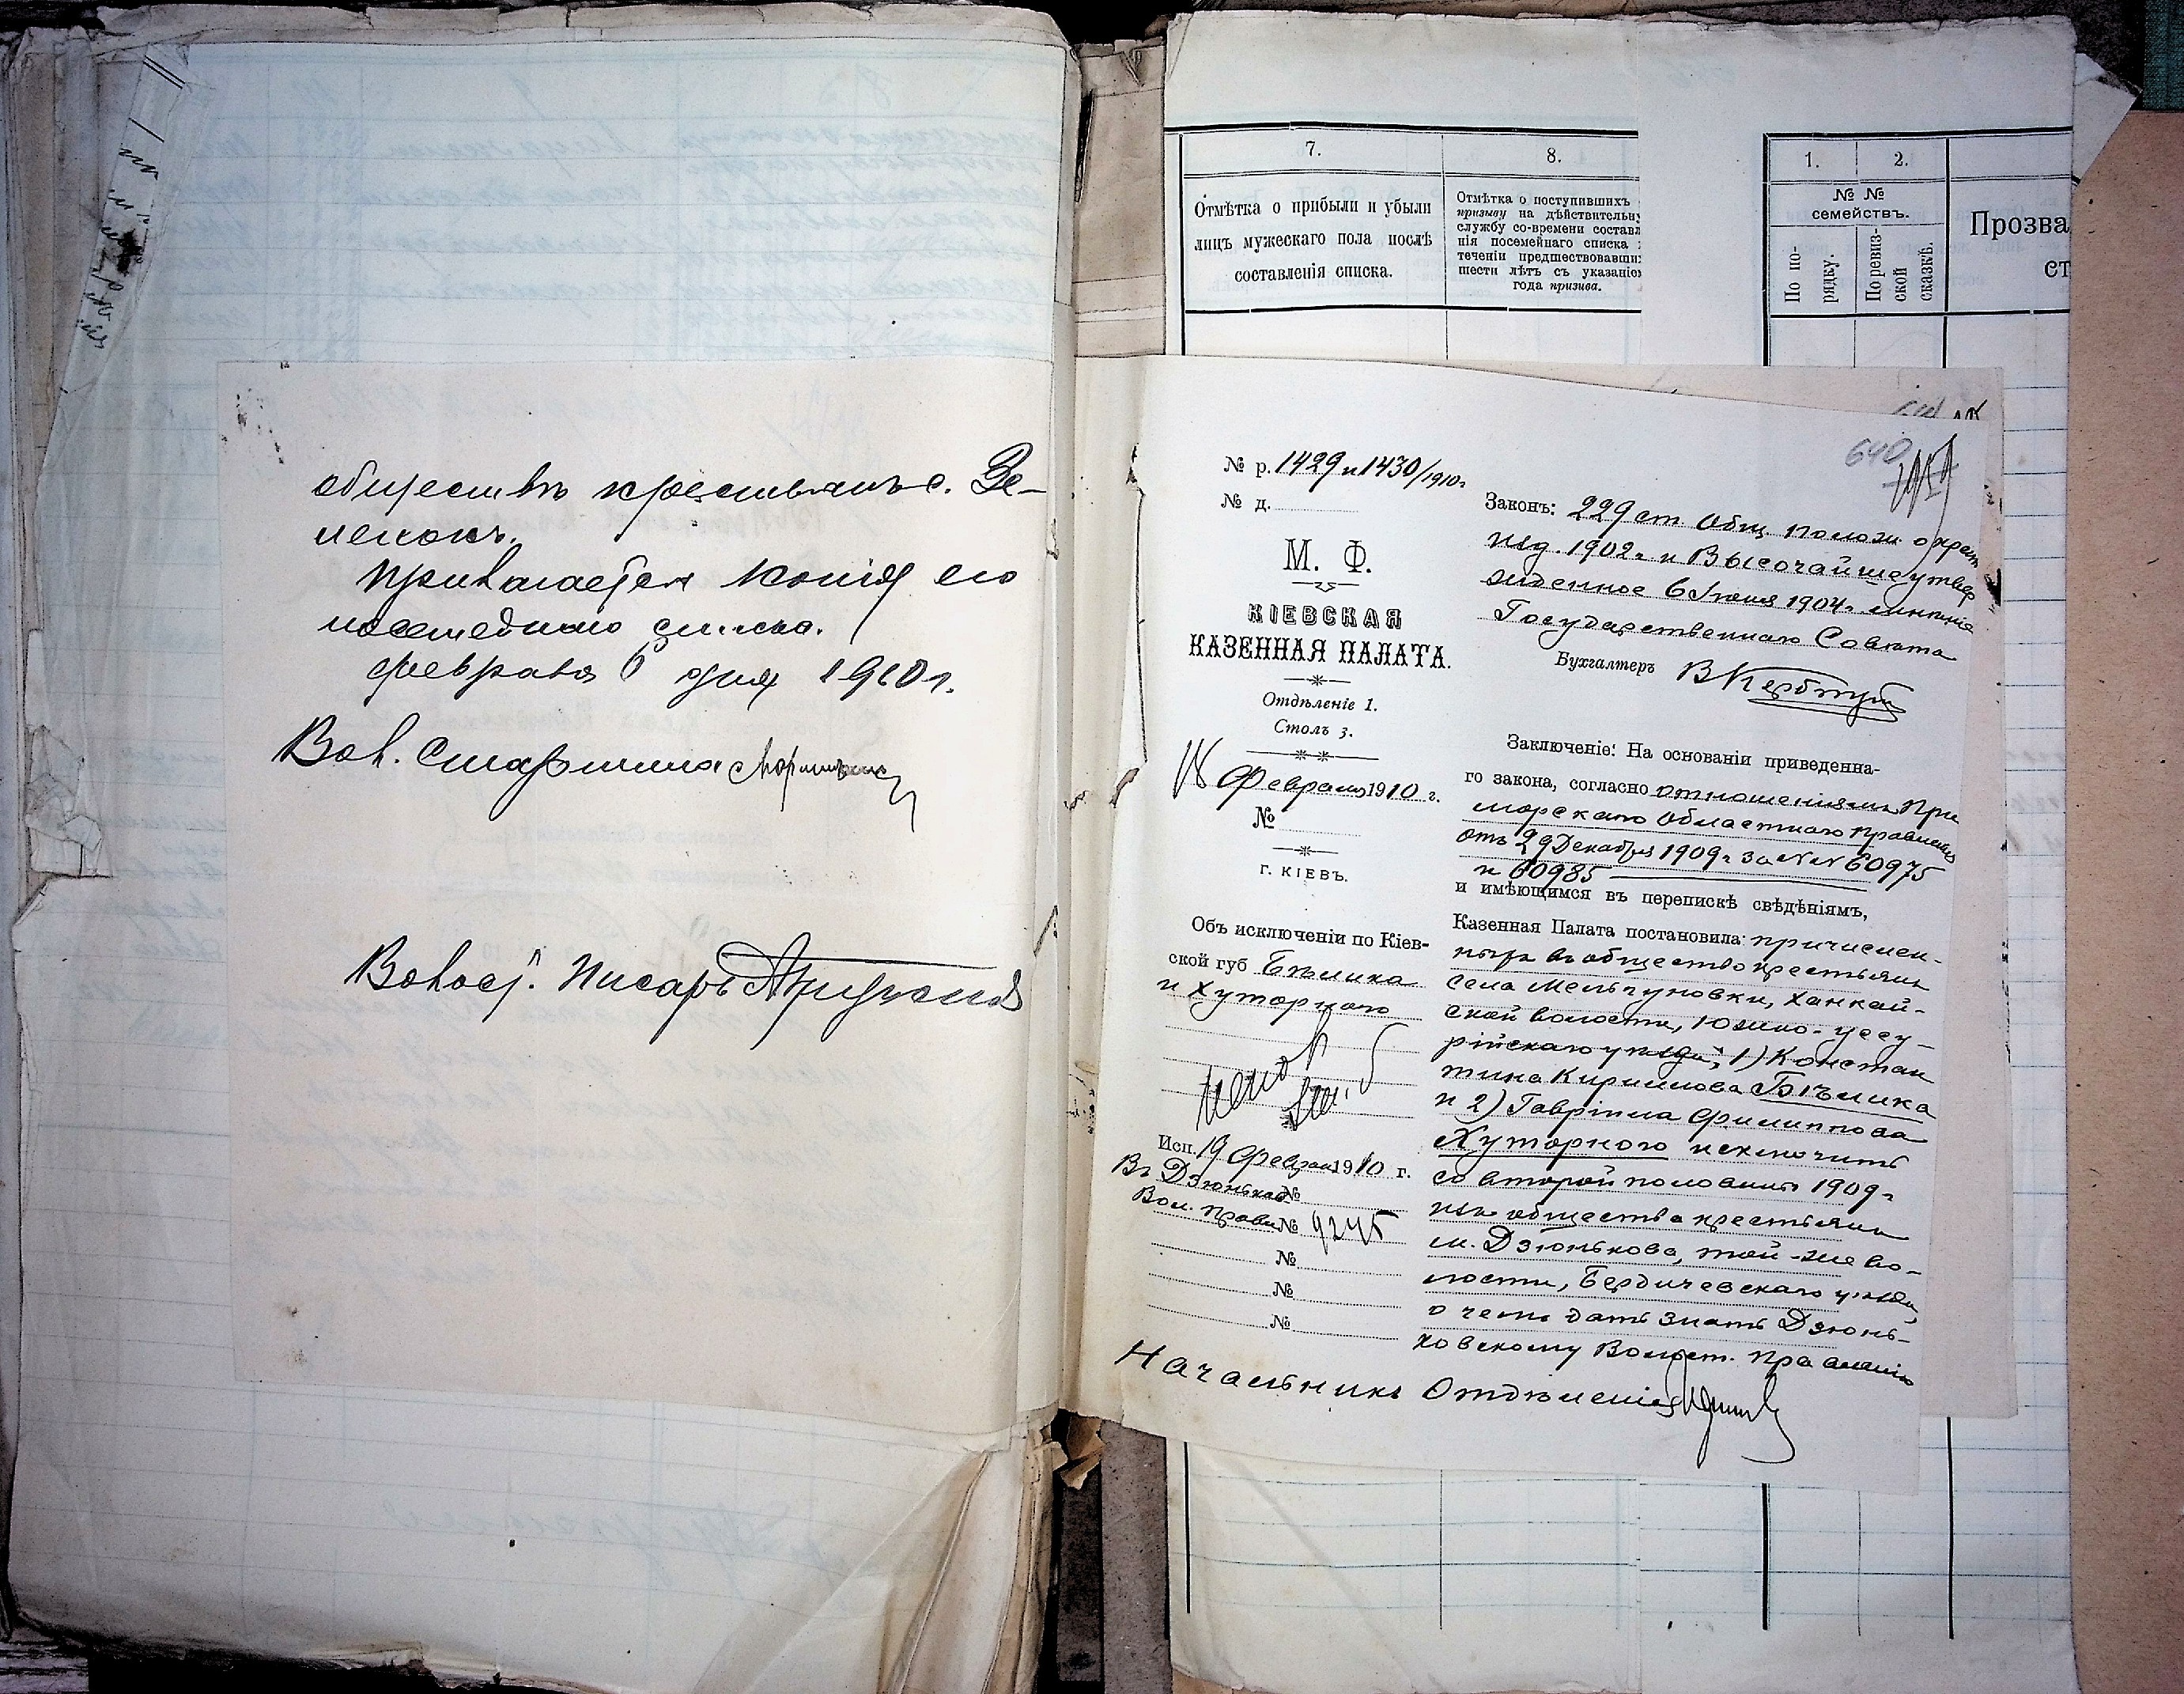 обществѣ крестьянъ с. Зе-
ленокъ.
Прилагается копія его
посемейнаго списка.
Февраля 6 дня 1910 г.
Вол. Старшина
Волост. Писарь
7.
8.
Отмѣтка о прибыли и убыли
лицъ мужескаго пола послѣ
составленія списка.
Отмѣтка о поступившихъ
призыву на дѣйствительн
службу со-времени составл
нія посемейнаго списка
теченіи предшествовавши
шести лѣтъ съ указаніе
года призыва.
1.
2.
№ №
семействъ.
По по-
рядку.
По ревиз-
ской
сказкѣ.
Прозва
ст
640
№ р. 1429 и 1430/1910 г.
№ д.
М. Ф.
КІЕВСКАЯ
КАЗЕННАЯ ПАЛАТА.
Отдѣленіе 1.
Столъ 3.
18 Февраля 1910 г.
№
г. КІЕВЪ.
Объ исключеніи по Кіев-
ской губ Бѣлика
и Хуторного
Исп. 19 Феврал 1910 г.
Въ Дзюньков №
Вол. Правл № 9245
№
№
№
Законъ: 229 ст Общ. полож о крест
изд. 1902 г. и Высочайше утвер
жденное 6 Іюня 1904 г. мнѣніе
Государственнаго Совѣта
Бухгалтеръ
Заключеніе: На основаніи приведенна-
го закона, согласно отношеніямъ При
морскаго Областного Правленія
отъ 29 Декабря 1909 г за №№ 60975
и 60985
и имѣющимся въ перепискѣ свѣдѣніямъ,
Казенная Палата постановила: причислен-
ныхъ въ общество крестьянъ
села Мельгуновки, Ханкай-
ской волости, Южно-Уссу-
рійскаго уѣзда, 1) Констан
тина Кириллова Бѣлика
и 2) Гавріила Филиппова
Хуторного исключить
со второй половины 1909 г
изъ общества крестьянъ
м. Дзюнькова, той-же во-
лости, Бердичевскаго уѣзда,
о чемъ дать знать Дзюнь-
ковскому Волост. Правленію
Начальникъ Отдѣленія